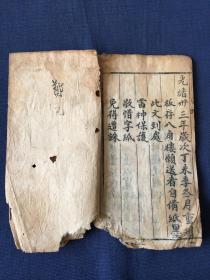 光緒卅三年歲次丁未季冬月重
板存八角樓願送者自備紙墨
此文到處
雷神保護
敬惜字紙
免得遭誅
鄭